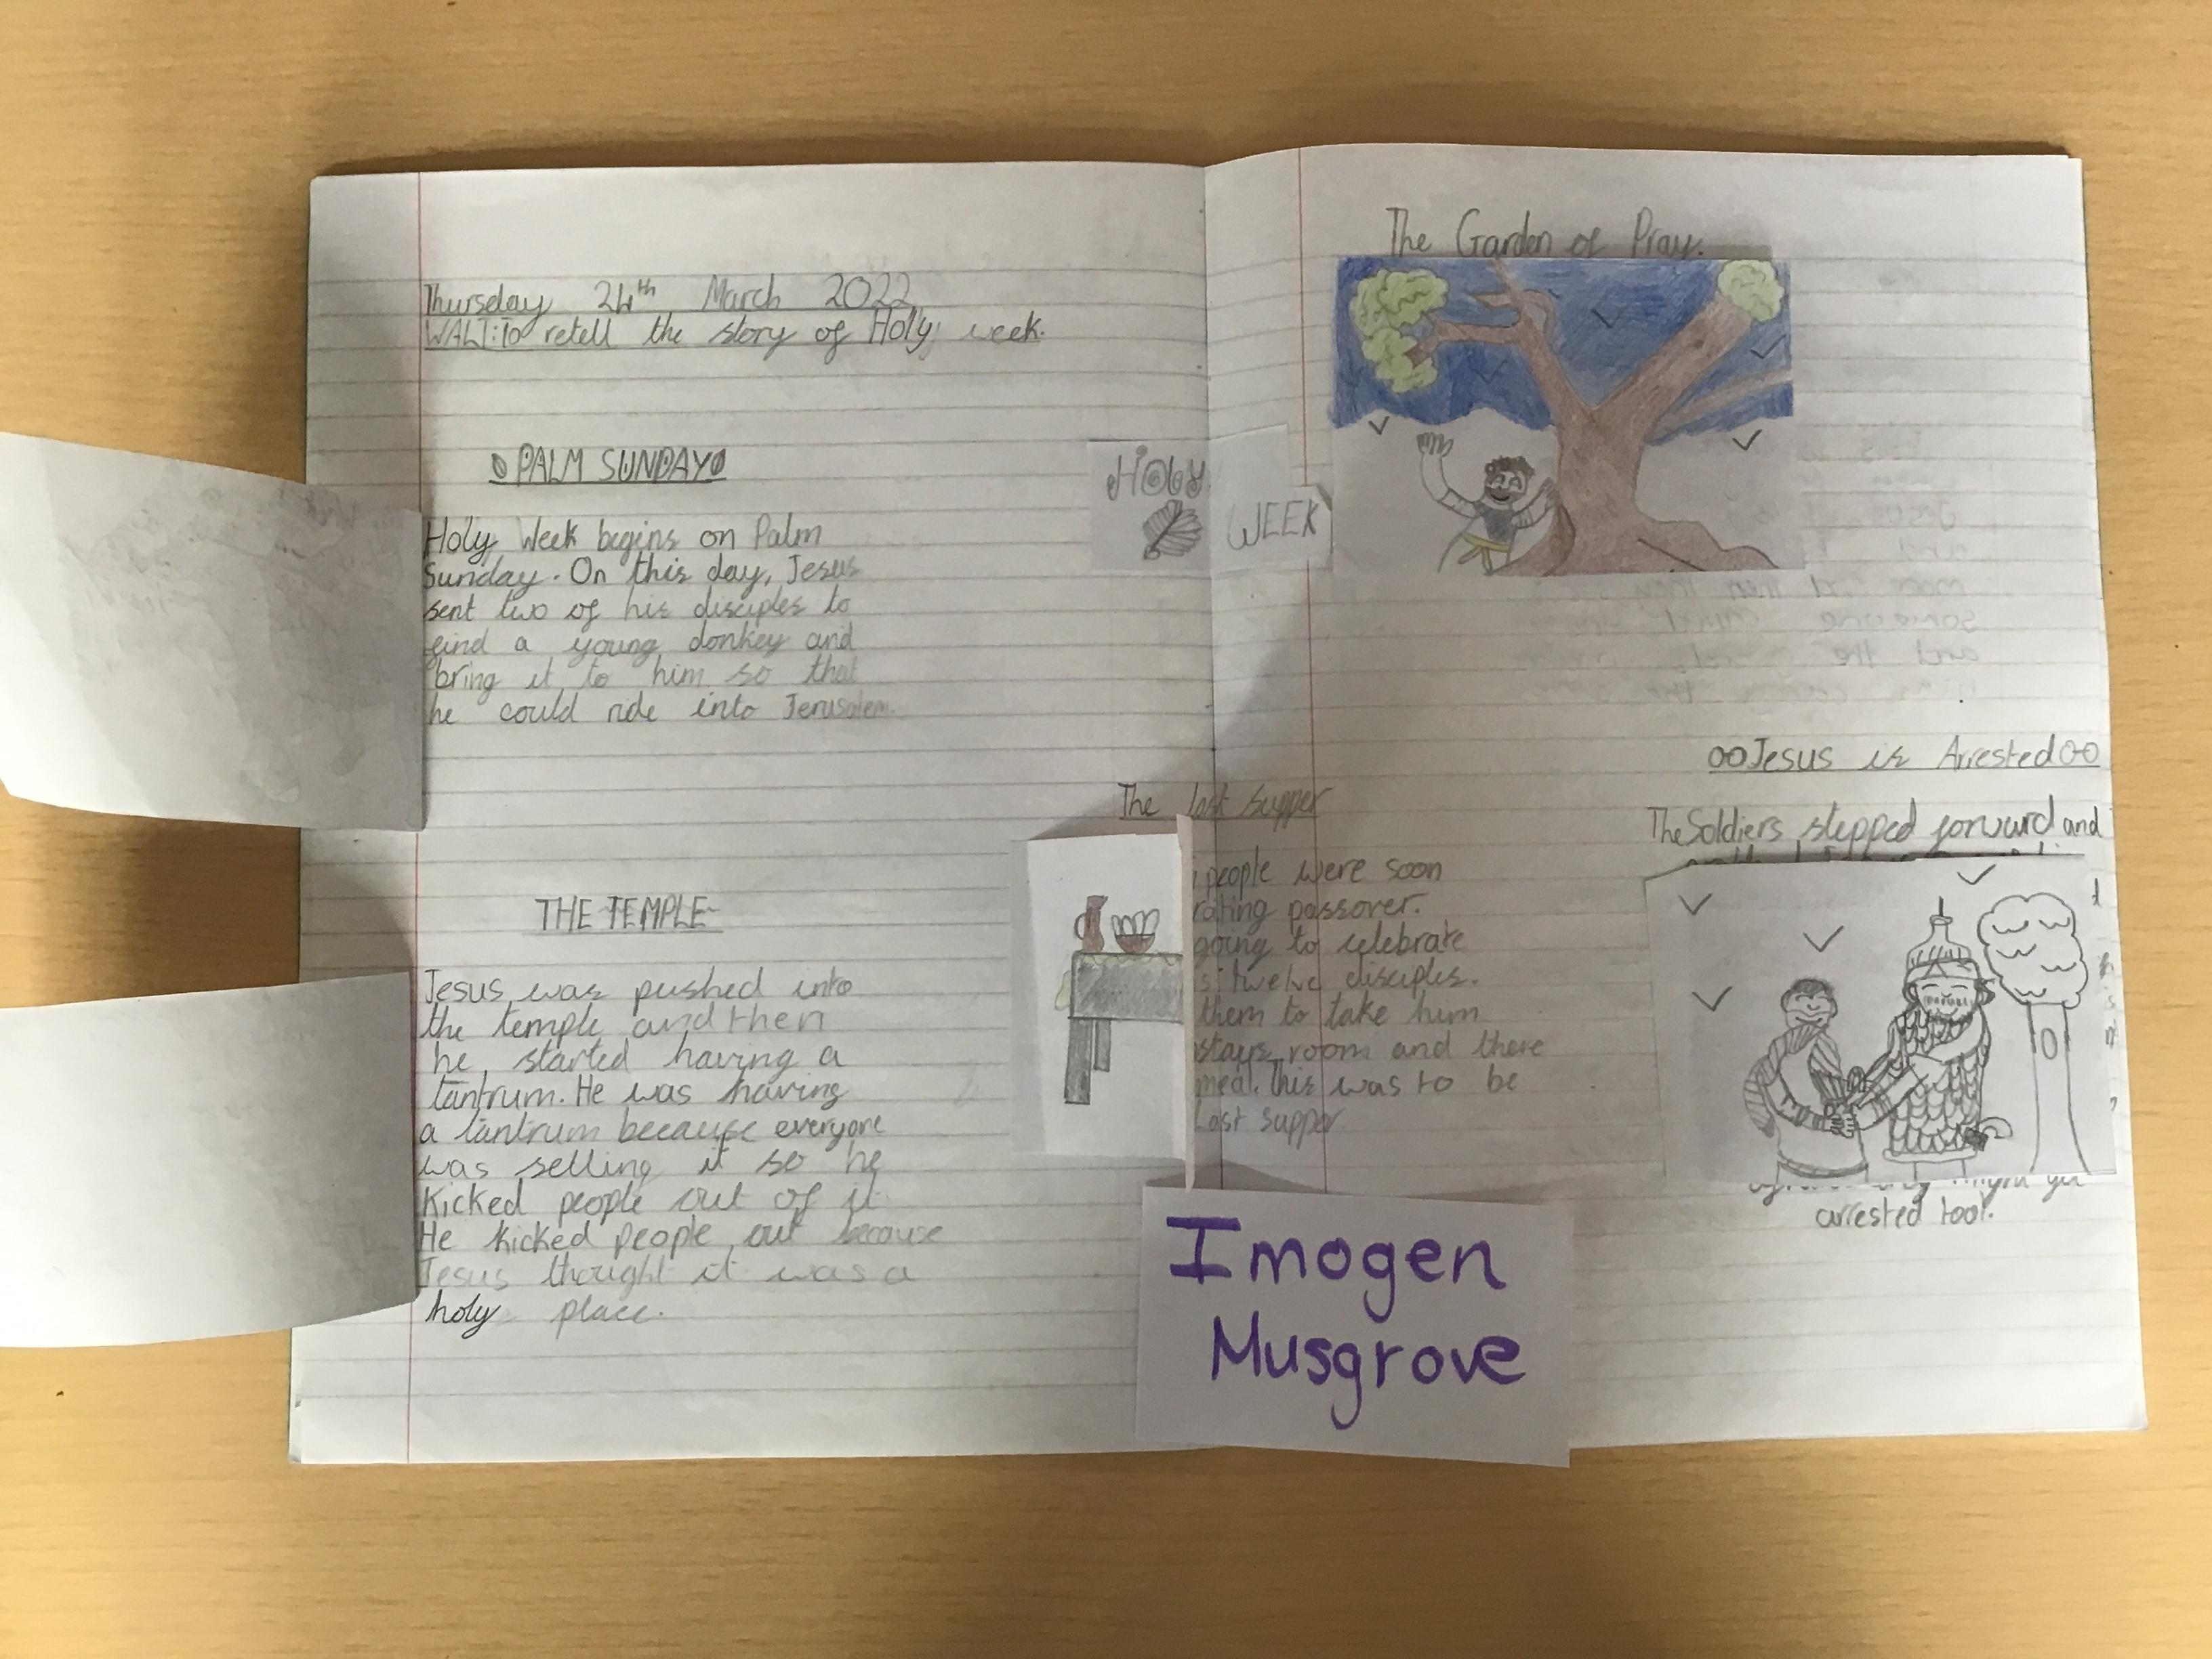 Thursday 24th March 2022
WALT: To retell the story of Holy week.
PALM SUNDAY
Holy Week begins on Palm
Sunday. On this day, Jesus
sent two of his disciples to
find a young donkey and
bring it to him so that
he could ride into Jerusalem.
THE TEMPLE
Jesus was pushed into
the temple and then
he started having a
tantrum. He was having
a tantrum because everyone
was selling it so he
Kicked people out of it
He kicked people out because
Jesus thought it was a
holy place.
HOLY
WEEK
The last supper
people were soon
rating passover.
going to celebrate
s twelve disciples.
them to take him
stays room and there
meal. This was to be
Last supper
The Garden of Pray.
Jesus is Arrested
The Soldiers stepped forward and
arrested too!.
Imogen
Musgrove